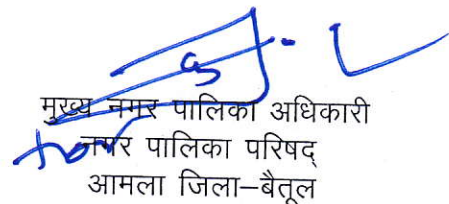 मुख्य नगर पालिका अधिकारी
नगर पालिका परिषद्
आमला जिला–बैतूल